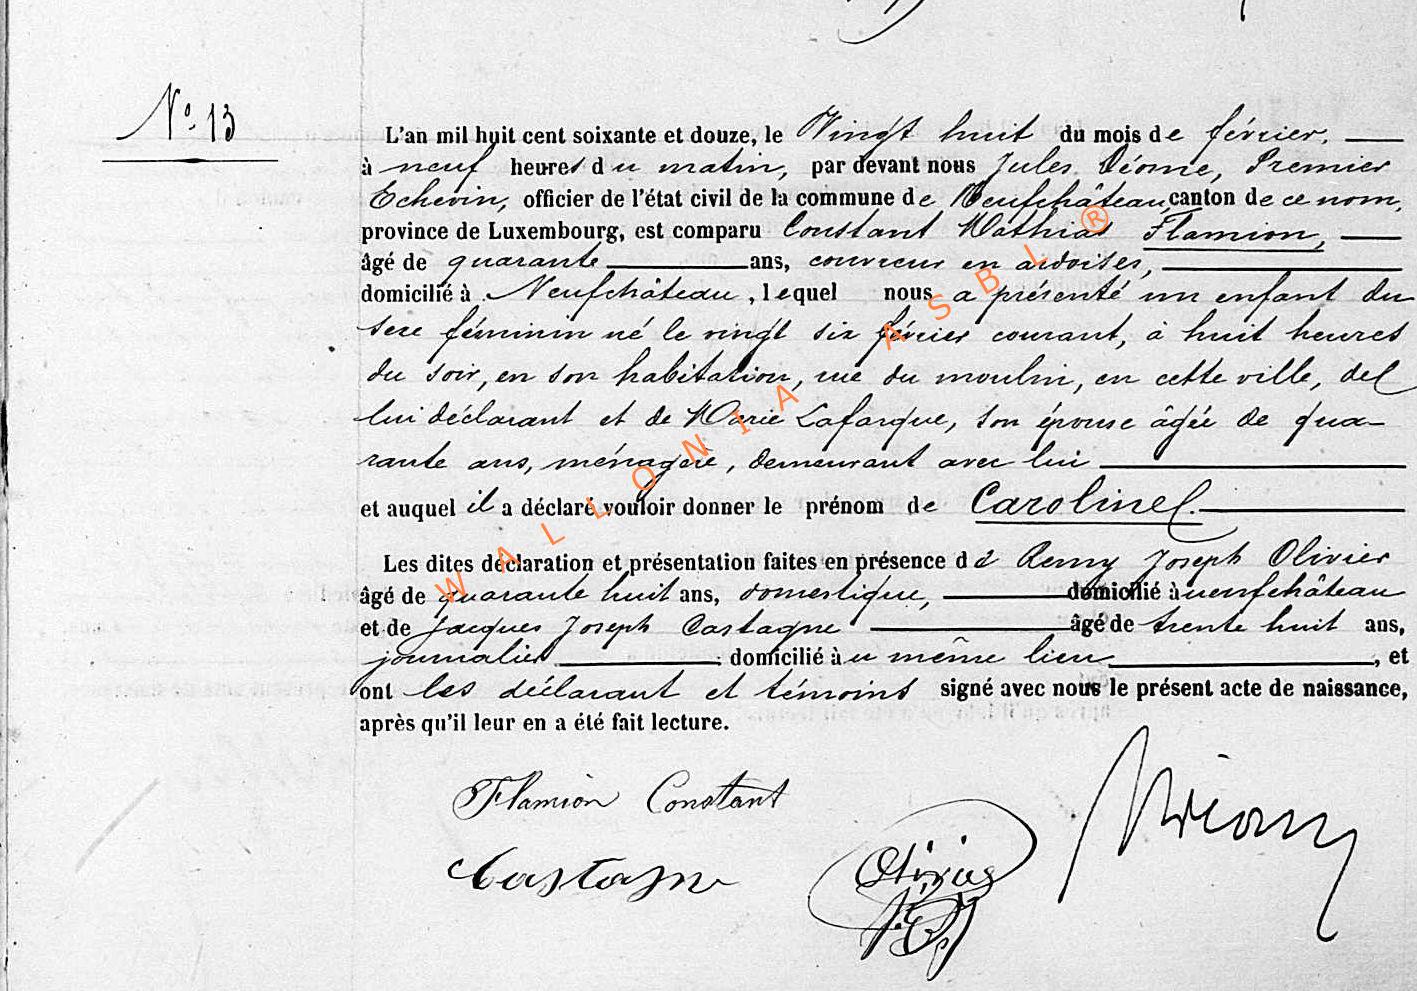 N° 13
L'an mil huit cent soixante et douze, le Vingt huit du mois de février,
à neuf heures du matin, par devant nous Jules Déome, Premier
Echevin, officier de l'état civil de la commune de Neufchâteau, canton de ce nom,
province de Luxembourg, est comparu Constant Mathias Flamion,
âgé de quarante ans, couvreur en ardoises,
domicilié à Neufchâteau, lequel nous a présenté un enfant du
sexe féminin né le vingt six février courant, à huit heures
du soir, en son habitation, rue du moulin, en cette ville, de
lui déclarant et de Marie Lafarque, son épouse âgée de qua-
rante ans, ménagère, demeurant avec lui
et auquel il a déclaré vouloir donner le prénom de Caroline.
Les dites déclaration et présentation faites en présence de Remy Joseph Olivier
âgé de quarante huit ans, domestique, domicilié à neufchâteau
et de Jacques Joseph Castagne âgé de trente huit ans,
journalier domicilié au même lieu, et
ont les déclarant et témoins signé avec nous le présent acte de naissance,
après qu'il leur en a été fait lecture.
Flamion Constant
Castagne
Olivier
WALLONIA ASBL ®